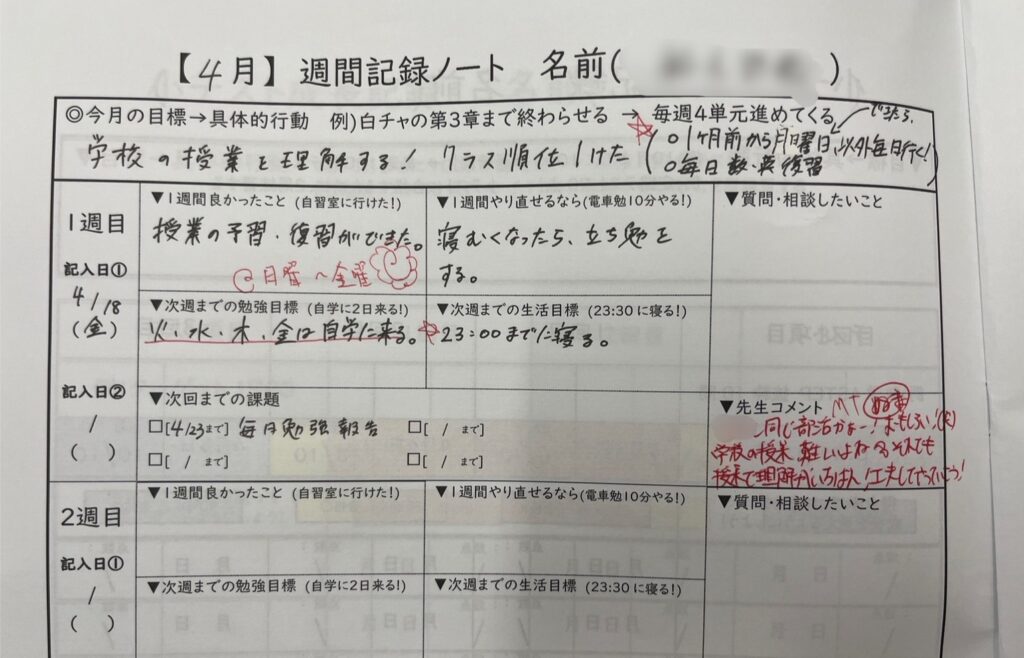 【4月】 週間記録ノート 名前( )
◎今月の目標→具体的行動 例)白チャの第3章まで終わらせる → 毎週4単元進めてくる
できたら、
学校の授業を理解する! クラス順位1けた
○1ヶ月前から月曜日以外毎日行く!
○毎日数・英復習
1週目
記入日①
4/18
(金)
▼1週間良かったこと (自習室に行けた!)
授業の予習・復習ができた。
日曜〜金曜
▼1週間やり直せるなら(電車勉10分やる!)
寝むくなったら、立ち勉を
する。
▼質問・相談したいこと
▼次週までの勉強目標 (自学に2日来る!)
火・水・木・金は自学に来る。
▼次週までの生活目標 (23:30に寝る!)
23:00までに寝る。
記入日②
/
( )
▼次回までの課題
□[4/23まで] 毎日勉強報告
□[ / まで]
□[ / まで]
□[ / まで]
▼先生コメント MT
同じ部活かぁー!おもしろい!(笑)
学校の授業難しいよねるそれでも
授業で理解が
2週目
記入日①
/
( )
▼1週間良かったこと (自習室に行けた!)
▼1週間やり直せるなら(電車勉10分やる!)
▼質問・相談したいこと
▼次週までの勉強目標 (自学に2日来る!)
▼次週までの生活目標 (23:30に寝る!)